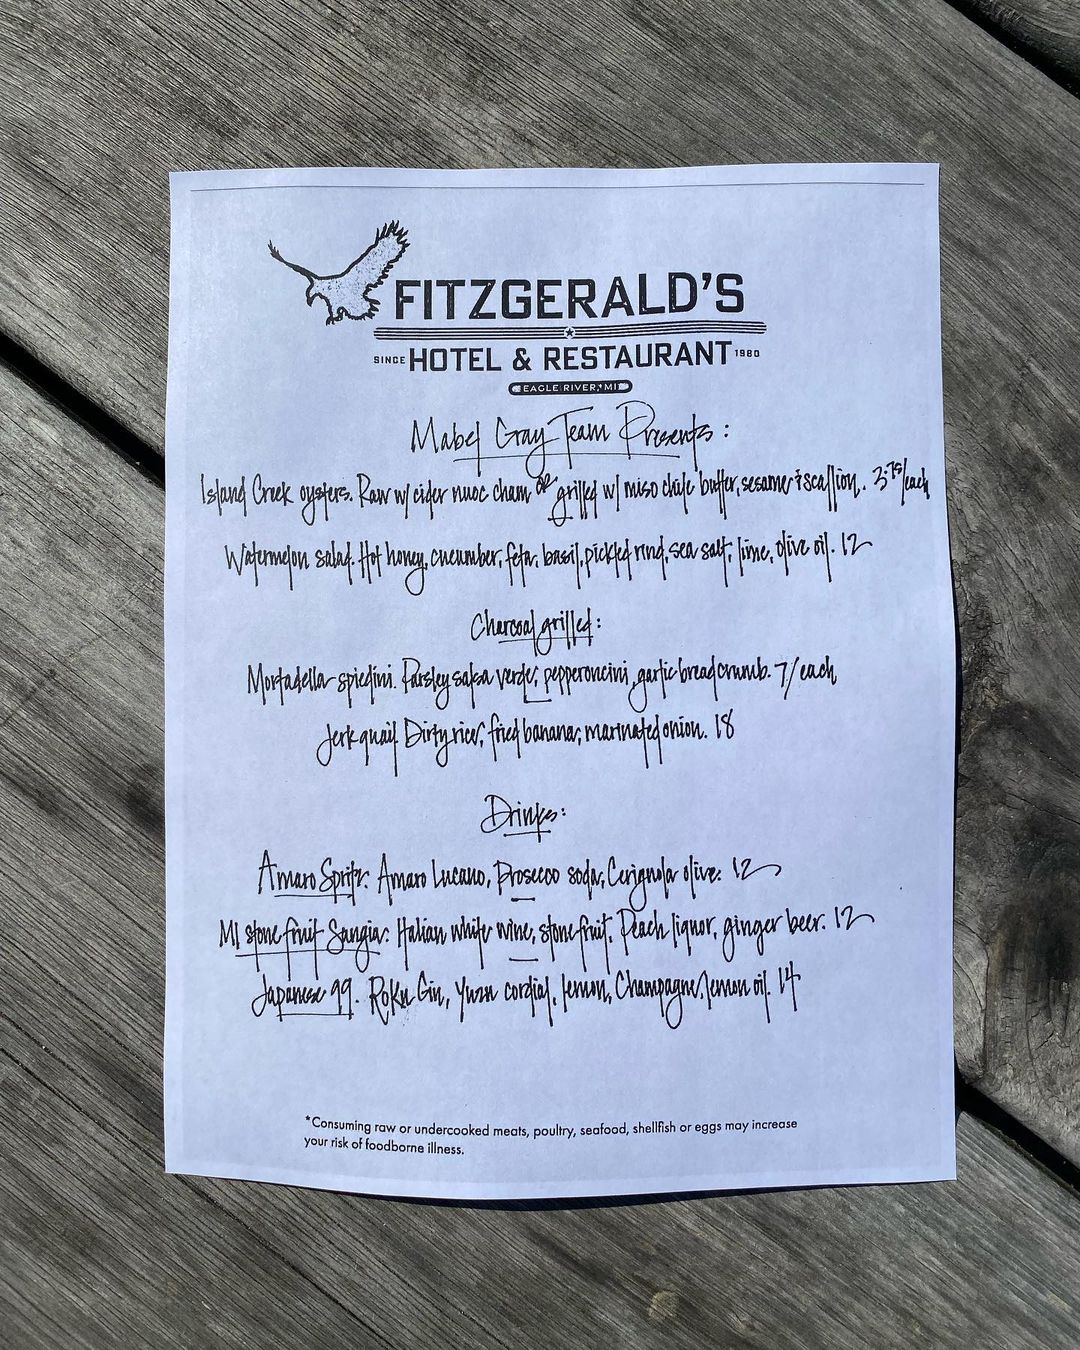 FITZGERALD'S
SINCE HOTEL & RESTAURANT 1980
EAGLE RIVER, MI
Mabel Gray Team Presents:
Island Creek oysters. Raw w/ cider nuoc cham or grilled w/ miso chile butter, sesame & scallion. 3.75/each
Watermelon salad. Hot honey, cucumber, feta, basil, pickled rind, sea salt, lime, olive oil. 12
Charcoal grilled:
Mortadella spiedini. Parsley salsa verde, pepperoncini, garlic breadcrumb. 7/each
Jerk quail Dirty rice, fried banana, marinated onion. 18
Drinks:
Amaro Spritz. Amaro Lucano, Prosecco soda, Cerignola olive. 12
MI stone fruit Sangia: Italian white wine, stone fruit, Peach liquor, ginger beer. 12
Japanese 99. Roku Gin, Yuzu cordial, lemon, Champagne, lemon oil. 14
*Consuming raw or undercooked meats, poultry, seafood, shellfish or eggs may increase
your risk of foodborne illness.